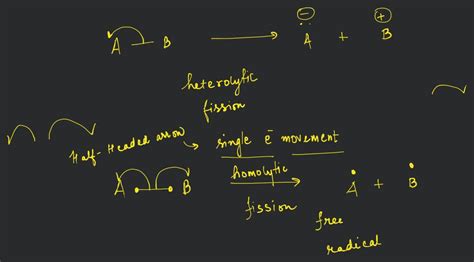 A — B ⟶ A⊖ : + B⊕
heterolytic
fission
Half-Headed arrow
single e⁻ movement
A •—• B
homolytic
fission
A• + B•
free
radical